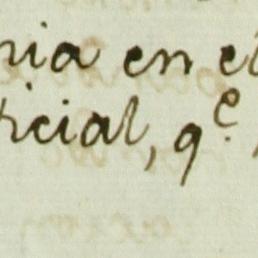 nia en el
ticial, q.e